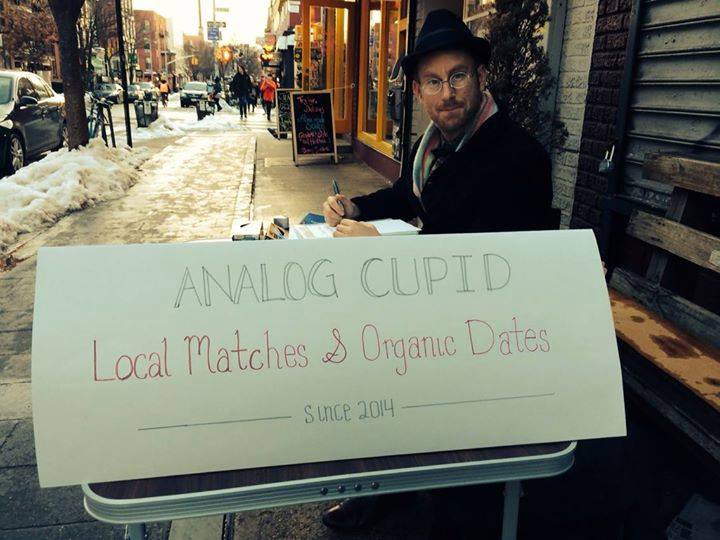 ANALOG CUPID
Local Matches & Organic Dates
since 2014